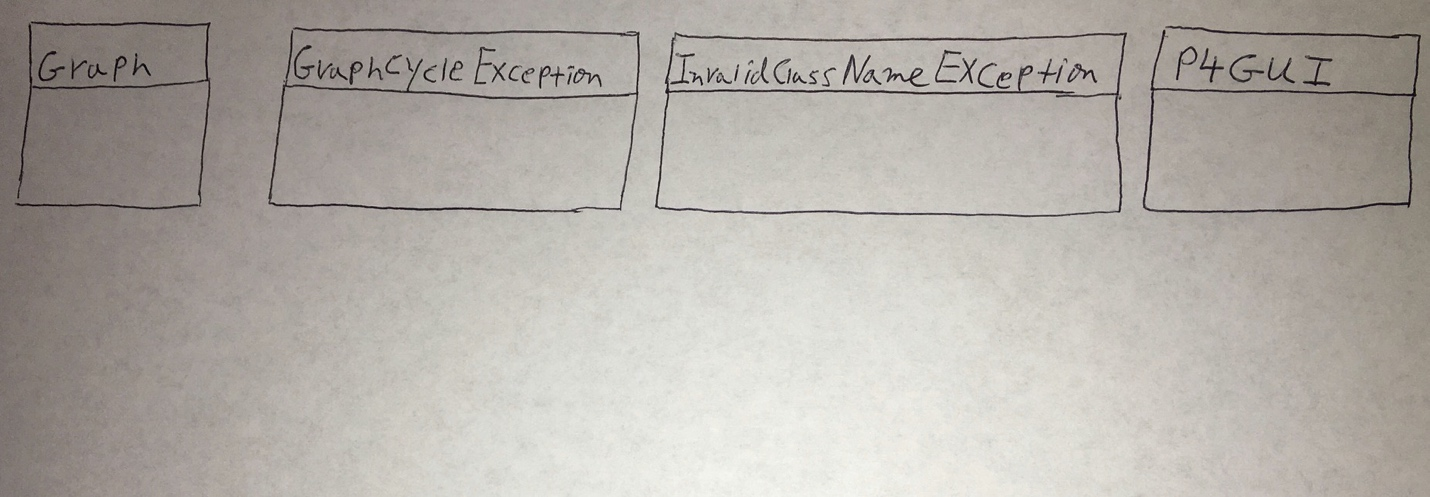 Graph
GraphCycleException
InvalidClassNameException
P4GUI